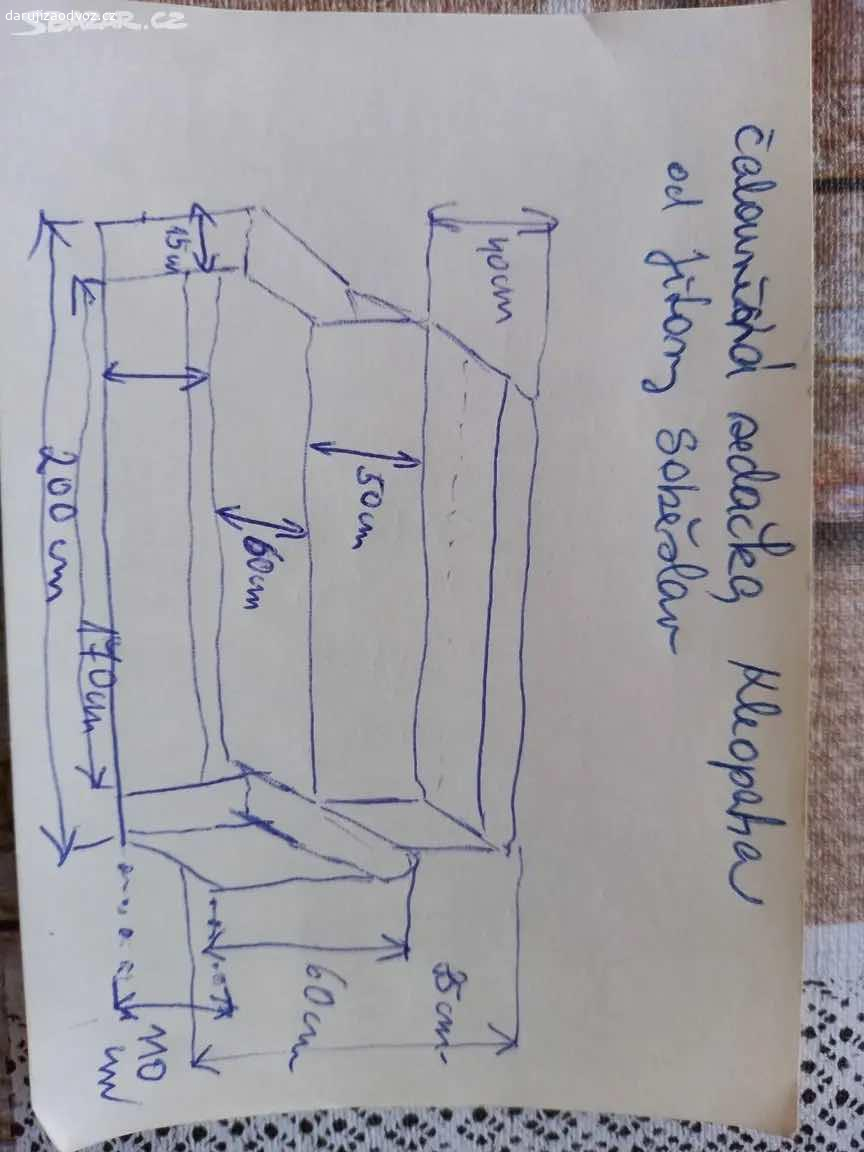 darujizaodvoz.cz
SBAZAR.CZ
čalouněná sedačka Kleopatra
od Jitony Soběslav
40cm
15cm
50cm
60cm
200cm
170cm
60cm
110
cm